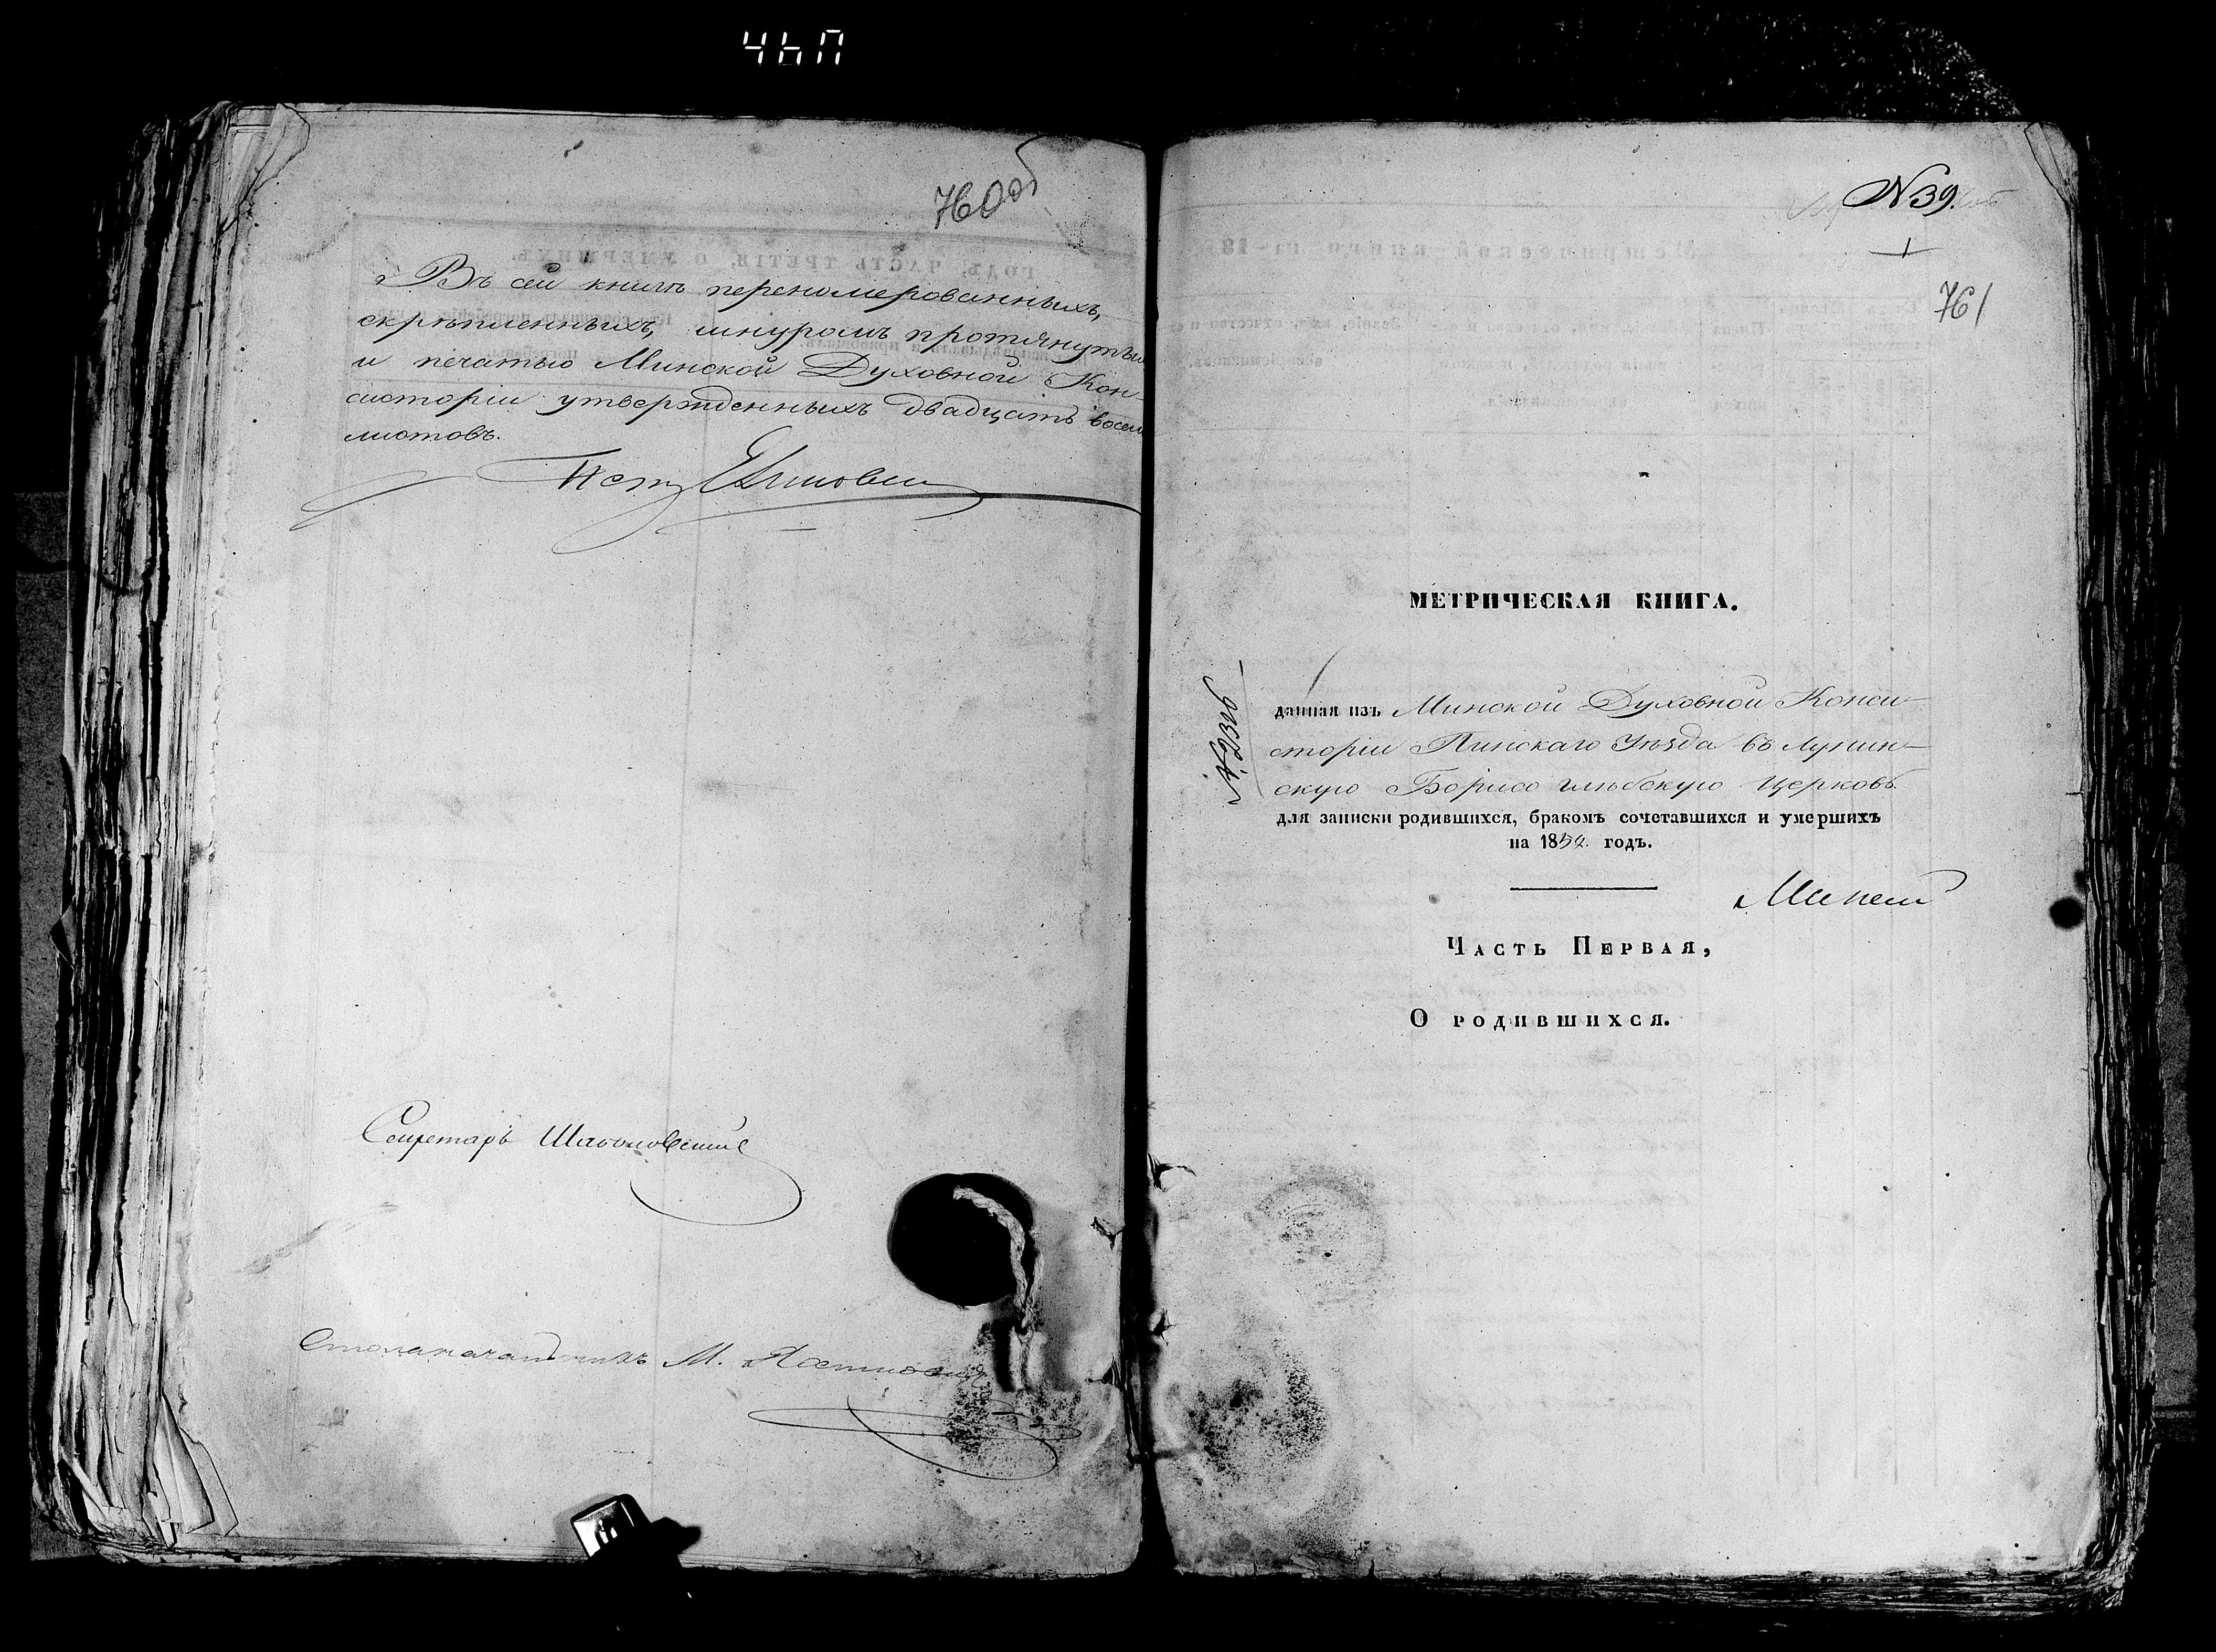 760об
Въ сей книгѣ перенумерованныхъ,
скрѣпленныхъ, шнуромъ протянутыхъ
и печатью Минской Духовной Кон-
систоріи утвержденныхъ двадцать восемь
листовъ.
Секретарь
Столоначальникъ М.
N 39.
761
МЕТРИЧЕСКАЯ КНИГА.
данная изъ Минской Духовной Конси-
сторіи Пинскаго Уѣзда въ Лунин-
скую Борисо глѣбскую Церковь
для записки родившихся, бракомъ сочетавшихся и умершихъ
на 1852. годъ.
Часть Первая,
О родившихся.